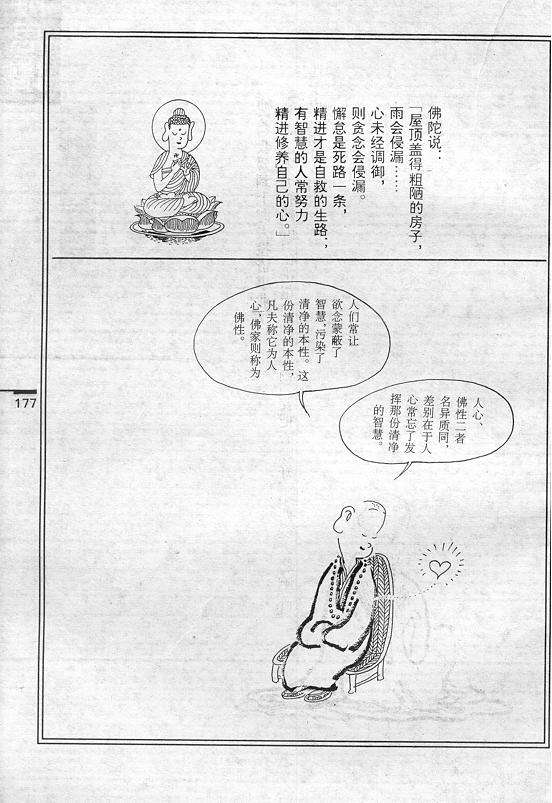 佛陀说：
「屋顶盖得粗陋的房子，
雨会侵漏……
心未经调御，
则贪念会侵漏。
懈怠是死路一条，
精进才是自救的生路，
有智慧的人常努力
精进修养自己的心。」
人心、
佛性二者
名异质同，
差别在于人
心常忘了发
挥那份清净
的智慧。
人们常让
欲念蒙蔽了
智慧，污染了
清净的本性。这
份清净的本性，
凡夫称它为人
心，佛家则称为
佛性。
177